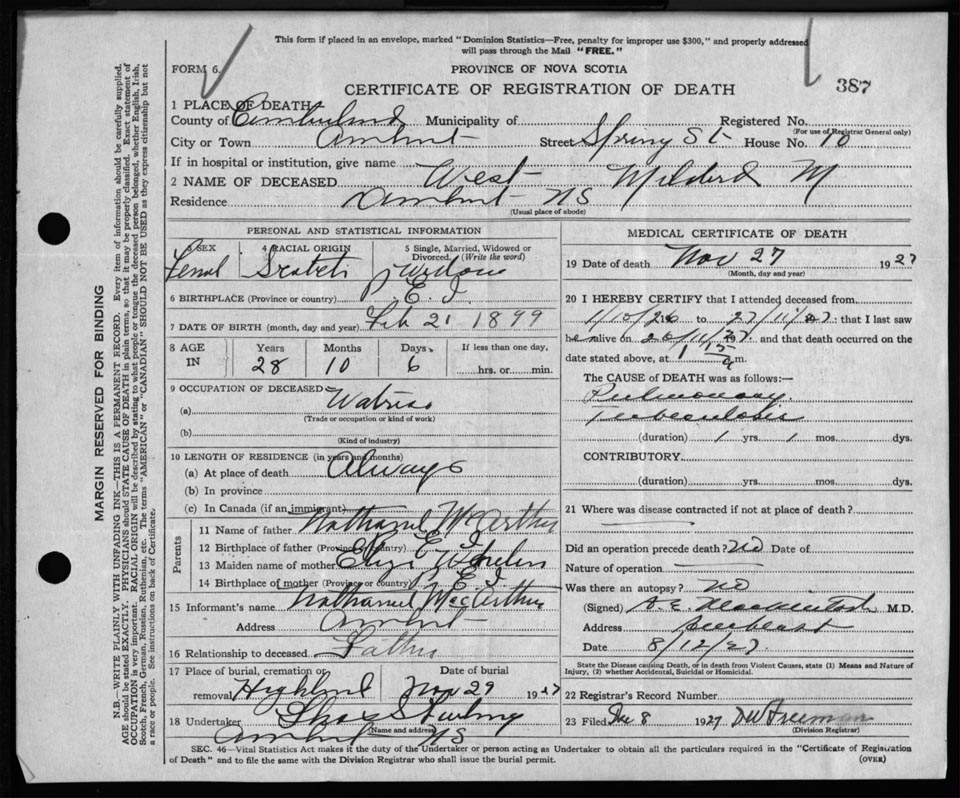 This form if placed in an envelope, marked "Dominion Statistics—Free, penalty for improper use $300," and properly addressed
will pass through the Mail "FREE."
FORM 6.
PROVINCE OF NOVA SCOTIA
CERTIFICATE OF REGISTRATION OF DEATH
387
1 PLACE OF DEATH
County of Cumberland Municipality of Registered No.
(For use of Registrar General only)
City or Town Amherst Street Spring St House No. 10
If in hospital or institution, give name
2 NAME OF DECEASED West Mildred M
Residence Amherst NS
(Usual place of abode)
PERSONAL AND STATISTICAL INFORMATION
3 SEX 4 RACIAL ORIGIN 5 Single, Married, Widowed or Divorced. (Write the word)
Femal Widow
6 BIRTHPLACE (Province or country) P E. I.
7 DATE OF BIRTH (month, day and year) Feb 21 1899
8 AGE IN Years Months Days If less than one day,
28 10 6 hrs. or min.
9 OCCUPATION OF DECEASED
(a)
(Trade or occupation or kind of work)
(b)
(Kind of industry)
10 LENGTH OF RESIDENCE (in years and months)
(a) At place of death Always
(b) In province
(c) In Canada (if an immigrant)
Parents
11 Name of father Nathanel McArthur
12 Birthplace of father (Province or country) P. E I
13 Maiden name of mother Eliza
14 Birthplace of mother (Province or country) P. E I.
15 Informant's name Nathanel MacArthur
Address Amherst
16 Relationship to deceased Father
17 Place of burial, cremation or removal Highland Date of burial Nov 29 1927
18 Undertaker
(Name and address)
Amherst NS
MEDICAL CERTIFICATE OF DEATH
19 Date of death Nov 27 1927
(Month, day and year)
20 I HEREBY CERTIFY that I attended deceased from
1/10/26 19 to 27/11/27: that I last saw
he alive on 26/11/27 and that death occurred on the
date stated above, at 1 15 a m.
The CAUSE OF DEATH was as follows:—
Pulmonary
Tuberculosis
(duration) 1 yrs. 1 mos. dys.
CONTRIBUTORY
(duration) yrs. mos. dys.
21 Where was disease contracted if not at place of death?
Did an operation precede death? No Date of
Nature of operation
Was there an autopsy? no
(Signed) A. E. Mackintosh M.D.
Address Amherst
Date 8/12/27.
State the Disease causing Death, or in death from Violent Causes, state (1) Means and Nature of
Injury, (2) whether Accidental, Suicidal or Homicidal.
22 Registrar's Record Number
23 Filed Dec 8 1927 Freeman
(Division Registrar)
SEC. 46—Vital Statistics Act makes it the duty of the Undertaker or person acting as Undertaker to obtain all the particulars required in the "Certificate of Registration
of Death" and to file the same with the Division Registrar who shall issue the burial permit.
(OVER)
MARGIN RESERVED FOR BINDING
N.B.—WRITE PLAINLY WITH UNFADING INK—THIS IS A PERMANENT RECORD. Every item of information should be carefully supplied.
AGE should be stated EXACTLY. PHYSICIANS should STATE CAUSE OF DEATH in plain terms, so that it may be properly classified. Exact statement of
OCCUPATION is very important. RACIAL ORIGIN will be described by stating to what people or tongue the deceased person belonged, whether English, Irish,
Scotch, French, German, Russian, Ruthenian, etc. The terms "AMERICAN" or "CANADIAN" SHOULD NOT BE USED as they express citizenship but not
a race or people. See instructions on back of Certificate.